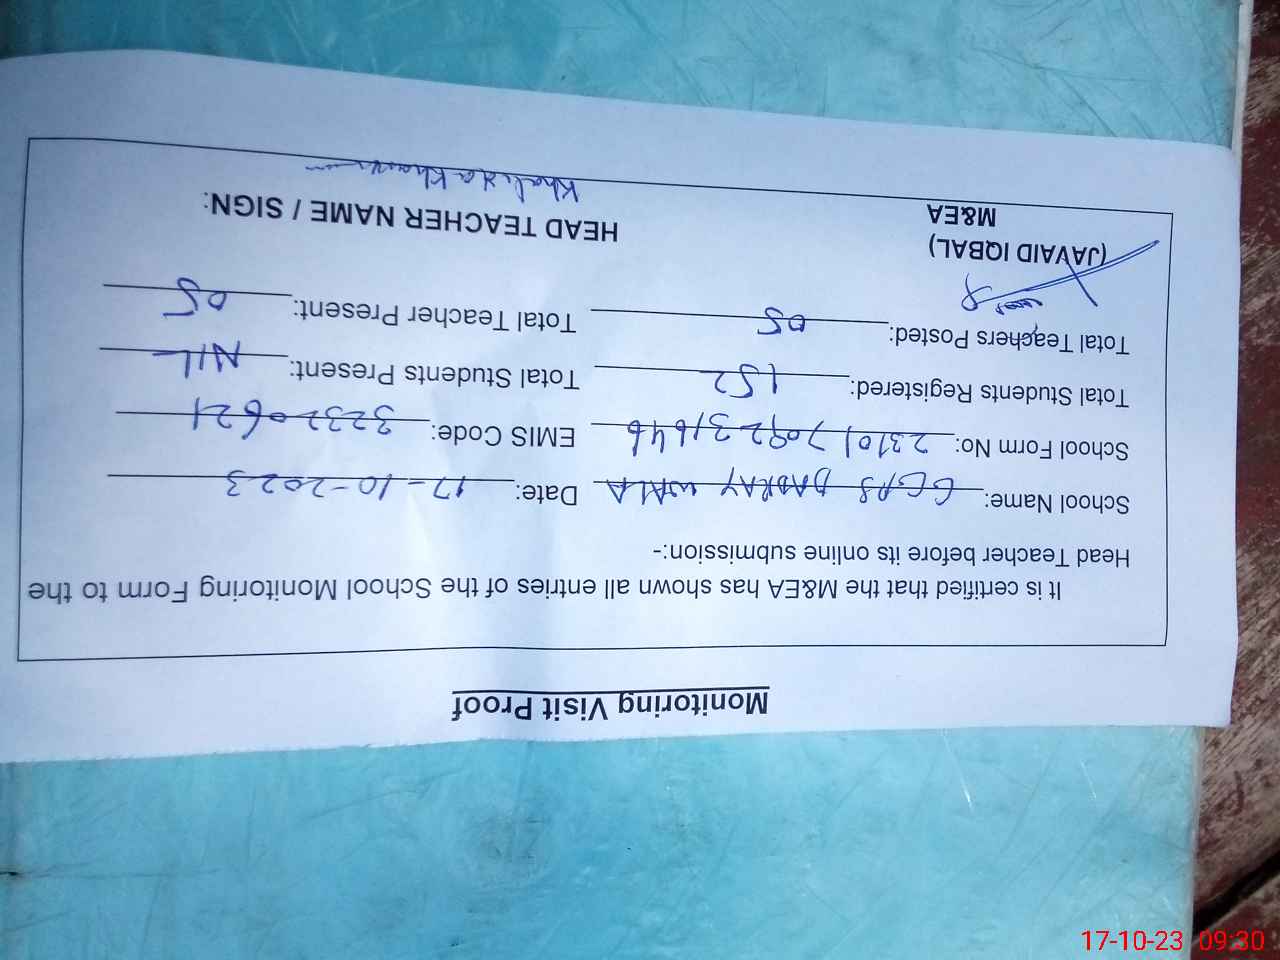 Monitoring Visit Proof
It is certified that the M&EA has shown all entries of the School Monitoring Form to the
Head Teacher before its online submission:-
School Name: GGPS DADRAY WALA Date: 17-10-2023
School Form No: 23101709231646 EMIS Code: 32320621
Total Students Registered: 152 Total Students Present: NIL
Total Teachers Posted: 05 Total Teacher Present: 05
(JAVAID IQBAL)
M&EA
HEAD TEACHER NAME / SIGN:
Khalida Khanum
17-10-23 09:30